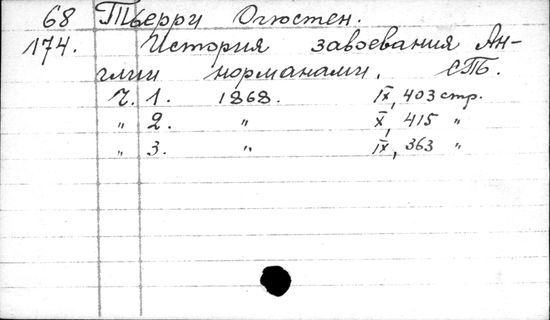 68 Тьерри Огюстен.
174. История завоевания Ан-
глии норманами. СТБ.
Ч. 1. 1868. IX, 403 стр.
" 2. " X, 415 "
" 3. " IX, 363 "